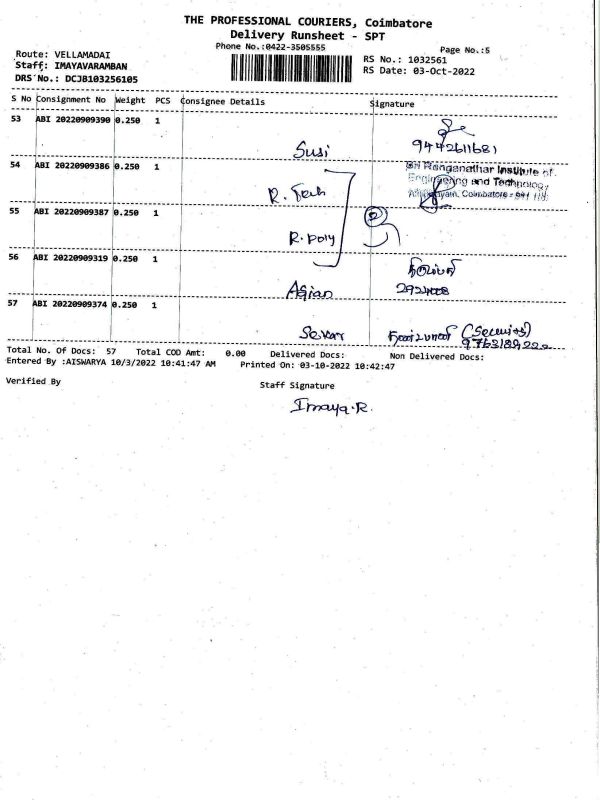 THE PROFESSIONAL COURIERS, Coimbatore
Delivery Runsheet - SPT
Phone No.:0422-3505555
Page No.:5
Route: VELLAMADAI
Staff: IMAYAVARAMBAN
DRS No.: DCJB103256105
RS No.: 1032561
RS Date: 03-Oct-2022
S No Consignment No Weight PCS Consignee Details Signature
53 ABI 20220909390 0.250 1
Susi 9442611681
54 ABI 20220909386 0.250 1
Sri Ranganathar Institute of
Engineering and Technology
Coimbatore - 641 110
R. Tech
55 ABI 20220909387 0.250 1
R. Poly
56 ABI 20220909319 0.250 1
Asian
57 ABI 20220909374 0.250 1
Sekar
Total No. Of Docs: 57 Total COD Amt: 0.00 Delivered Docs: Non Delivered Docs:
Entered By :AISWARYA 10/3/2022 10:41:47 AM Printed On: 03-10-2022 10:42:47
Verified By Staff Signature
Imaya.R.